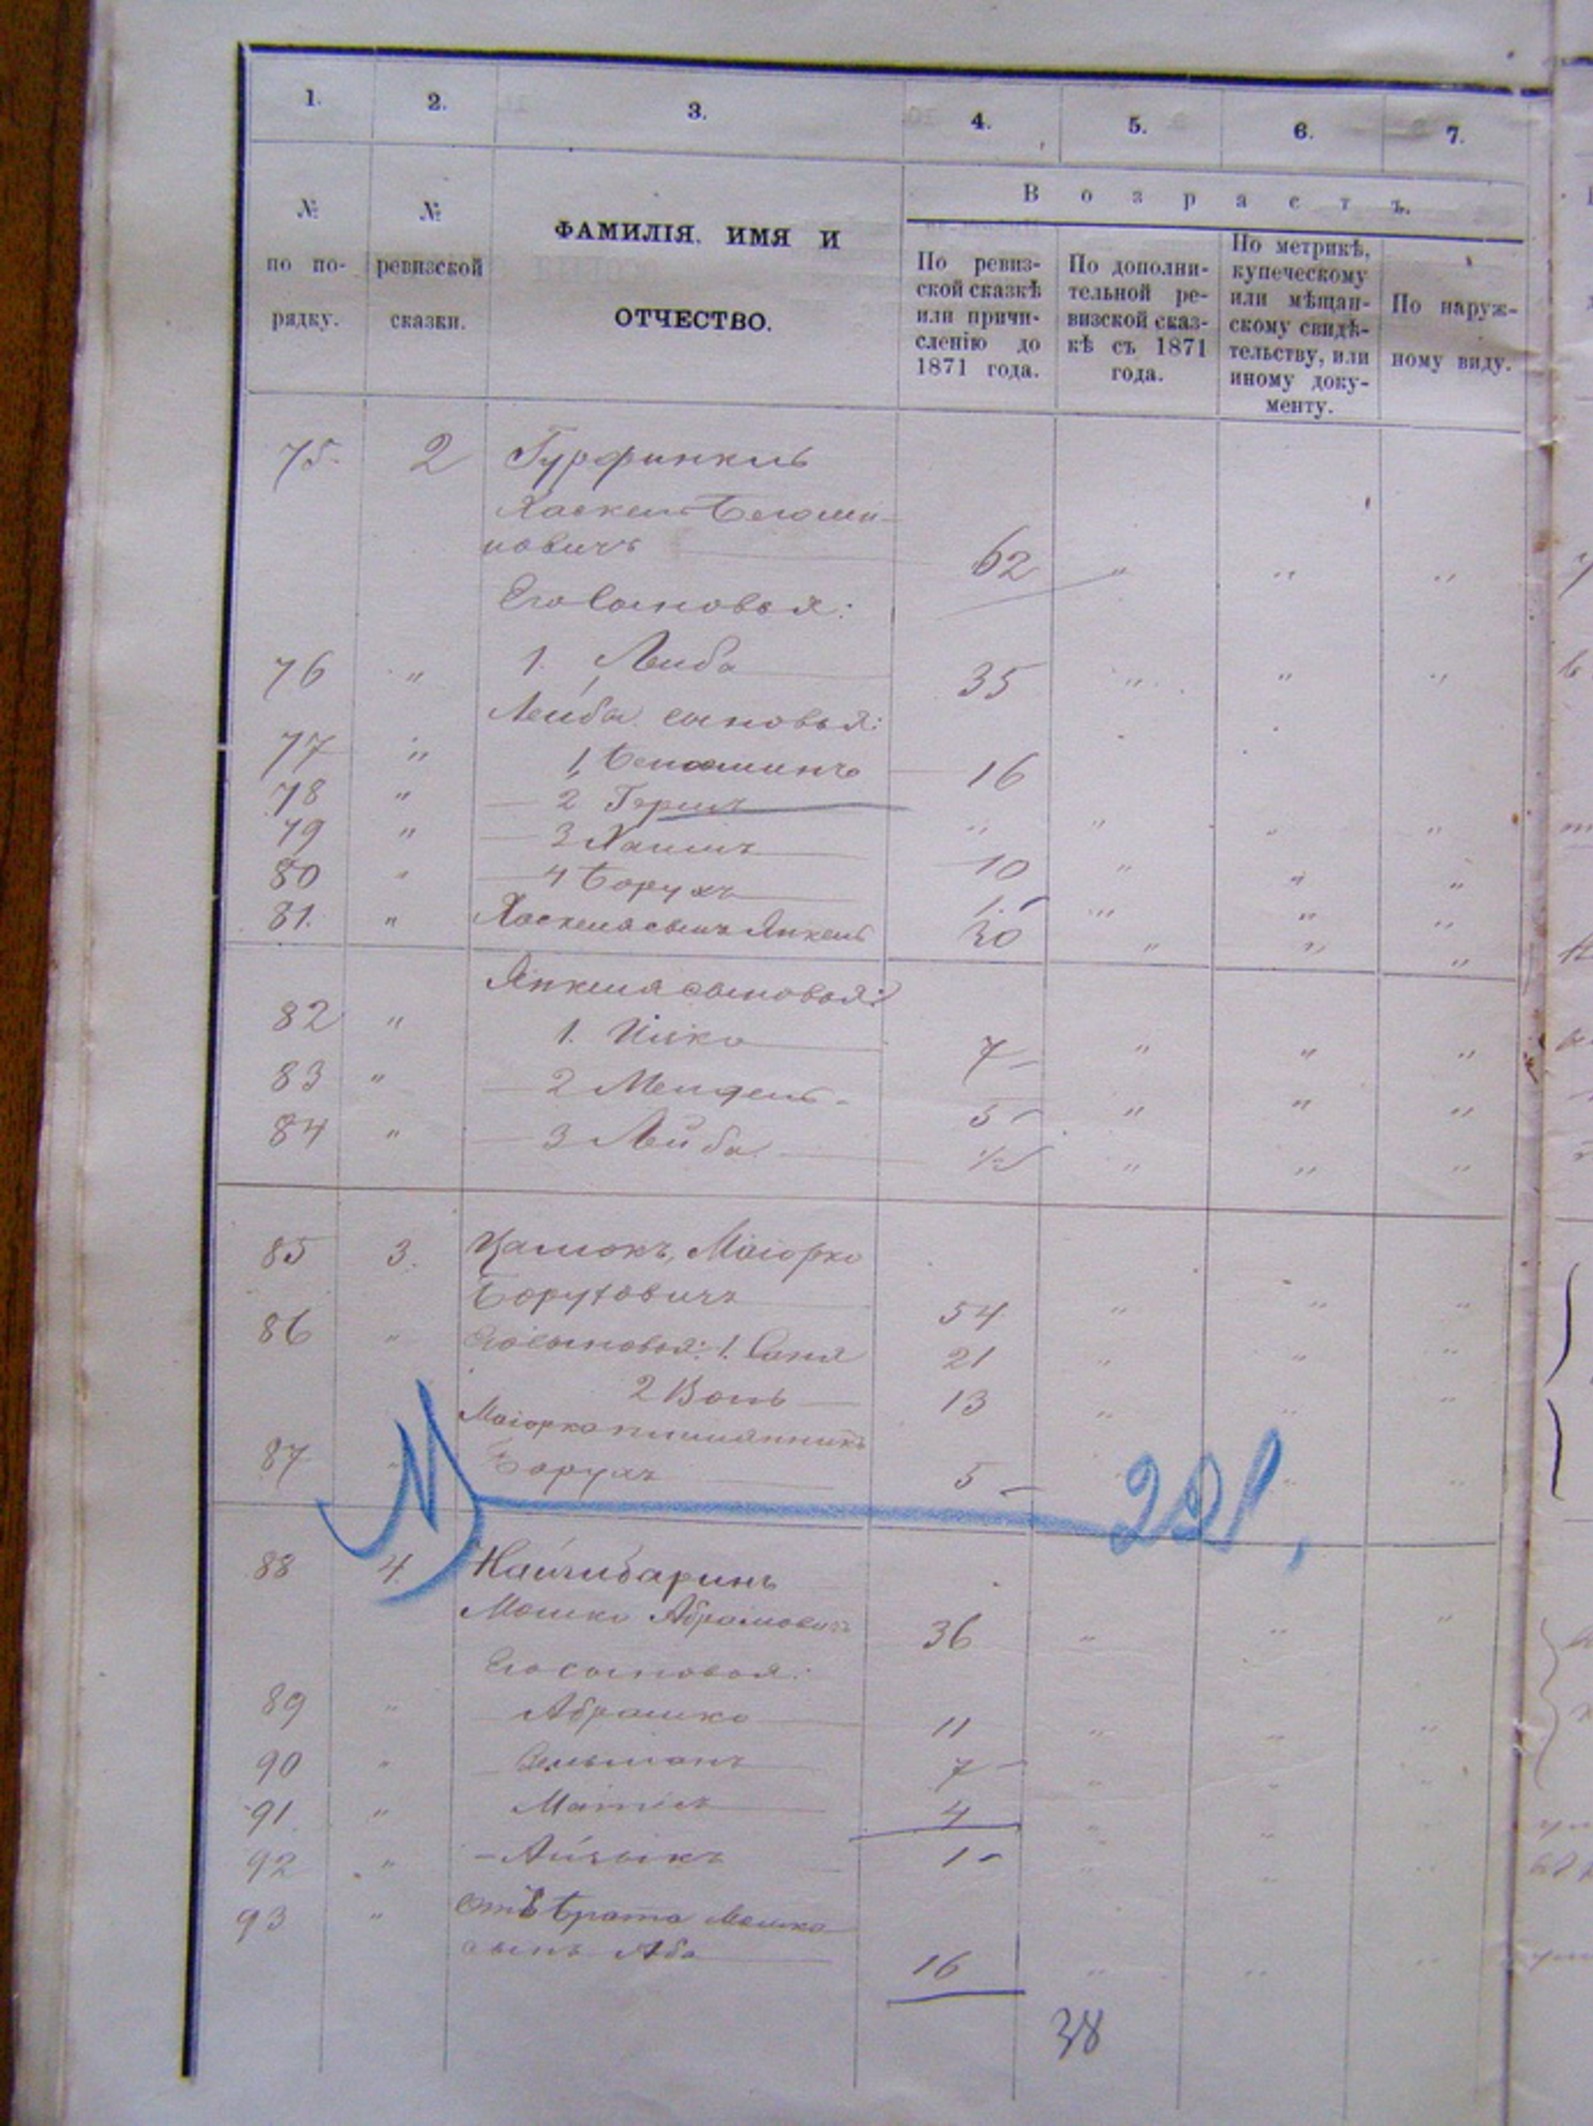 1. 2. 3. 4. 5. 6. 7.
№ по по-рядку.
№ ревизской сказки.
ФАМИЛІЯ, ИМЯ И
ОТЧЕСТВО.
Возрастъ.
По ревиз-
ской сказкѣ
или причи-
сленію до
1871 года.
По дополни-
тельной ре-
визской сказ-
кѣ съ 1871
года.
По метрикѣ,
купеческому
или мѣщан-
скому свидѣ-
тельству, или
иному доку-
менту.
По наруж-
ному виду.
75. 2 Гурфинкель
Хаскель Беніоми-
новичъ 62 „ „ „
Его Сыновья:
76 „ 1. Лейба 35 „ „ „
Лейбы сыновья:
77 „ 1. Беніоминъ 16
78 „ 2 Гершъ „ „ „ „
79 „ 3 Хаимъ 10 „ „ „
80 „ 4 Борухъ 1. „ „ „
81. „ Хаскеля сынъ Янкель 30 „ „ „
Янкеля сыновья:
82 „ 1. Ицко 7 „ „ „
83 „ 2 Мендель 5 „ „ „
84 „ 3 Лейба ½ „ „ „
85 3. Цалюкъ, Маіорко
Боруховичъ 54 „ „ „
86 „ Его сыновья: 1. Саня 21 „ „ „
2 Воль 13 „ „ „
Маіорка племянникъ
87 „ Борухъ 5 „ „
221,
88 4. Найчибаринъ
Мошко Абрамовичъ 36 „ „ „
Его сыновья:
89 „ Абрашко 11 „ „ „
90 „ Вельманъ 7 „ „ „
91. „ Матісъ 4 „ „
92 „ Айзыкъ 1 „ „ „
93 „ Отъ брата Мошка
сынъ Аба 16 „ „ „
38